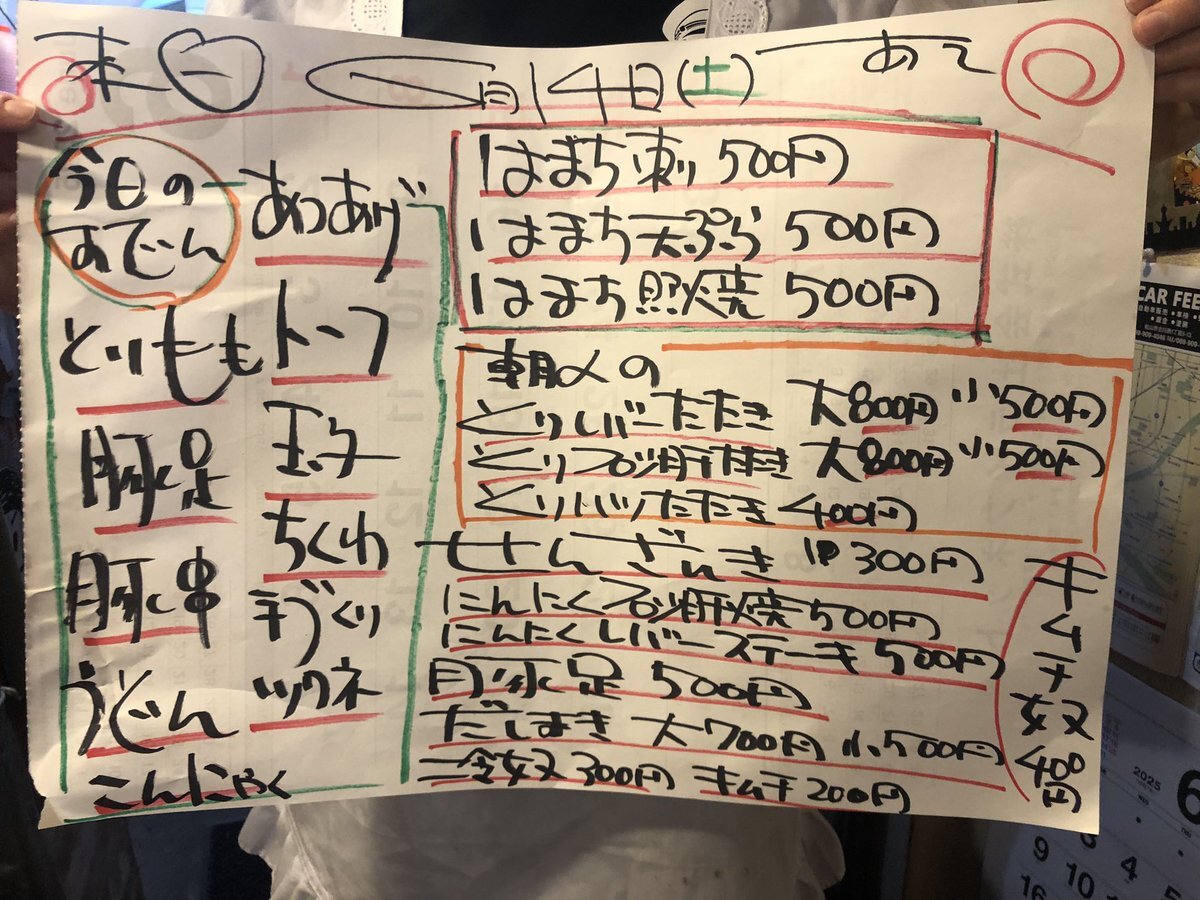 本日 6月14日(土) あて
今日の
おでん
あつあげ
とりもも
トーフ
豚足
玉子
ちくわ
豚串
手づくり
ツクネ
うどん
こんにゃく
はまち刺 500円
はまち天ぷら 500円
はまち照焼 500円
朝〆の
とりレバーたたき 大800円 小500円
とりズリ肝たたき 大800円 小500円
とりハツたたき 400円
せんざんき 1P 300円
にんにくズリ肝焼 500円
にんにくレバーステーキ 500円
豚足 500円
だしまき 大700円 小500円
冷奴 300円 キムチ 200円
キムチ奴400円
CAR FEE
2025
6
3 4 5
9 10 11
16